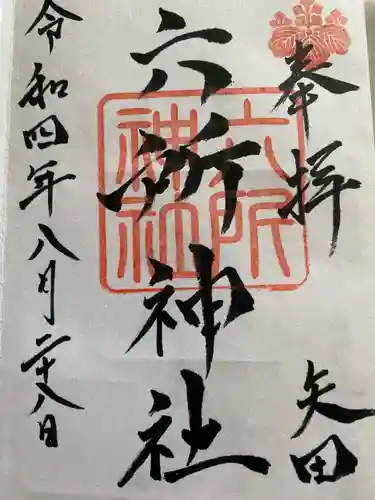 奉拝
矢田
六所神社
六所神社
令和四年八月二十八日